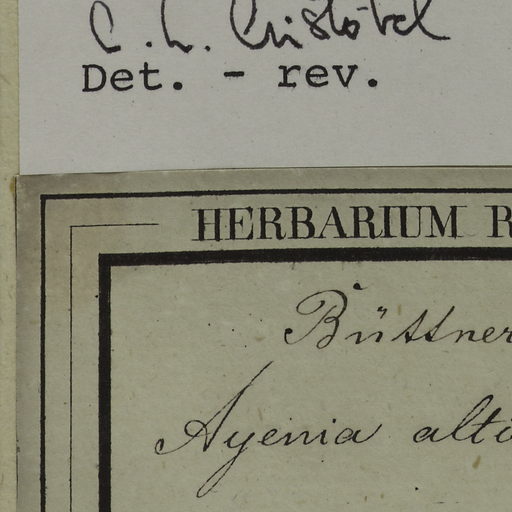 C. L. Cristóbal
Det. - rev.
HERBARIUM R
Büttner
Ayenia alti